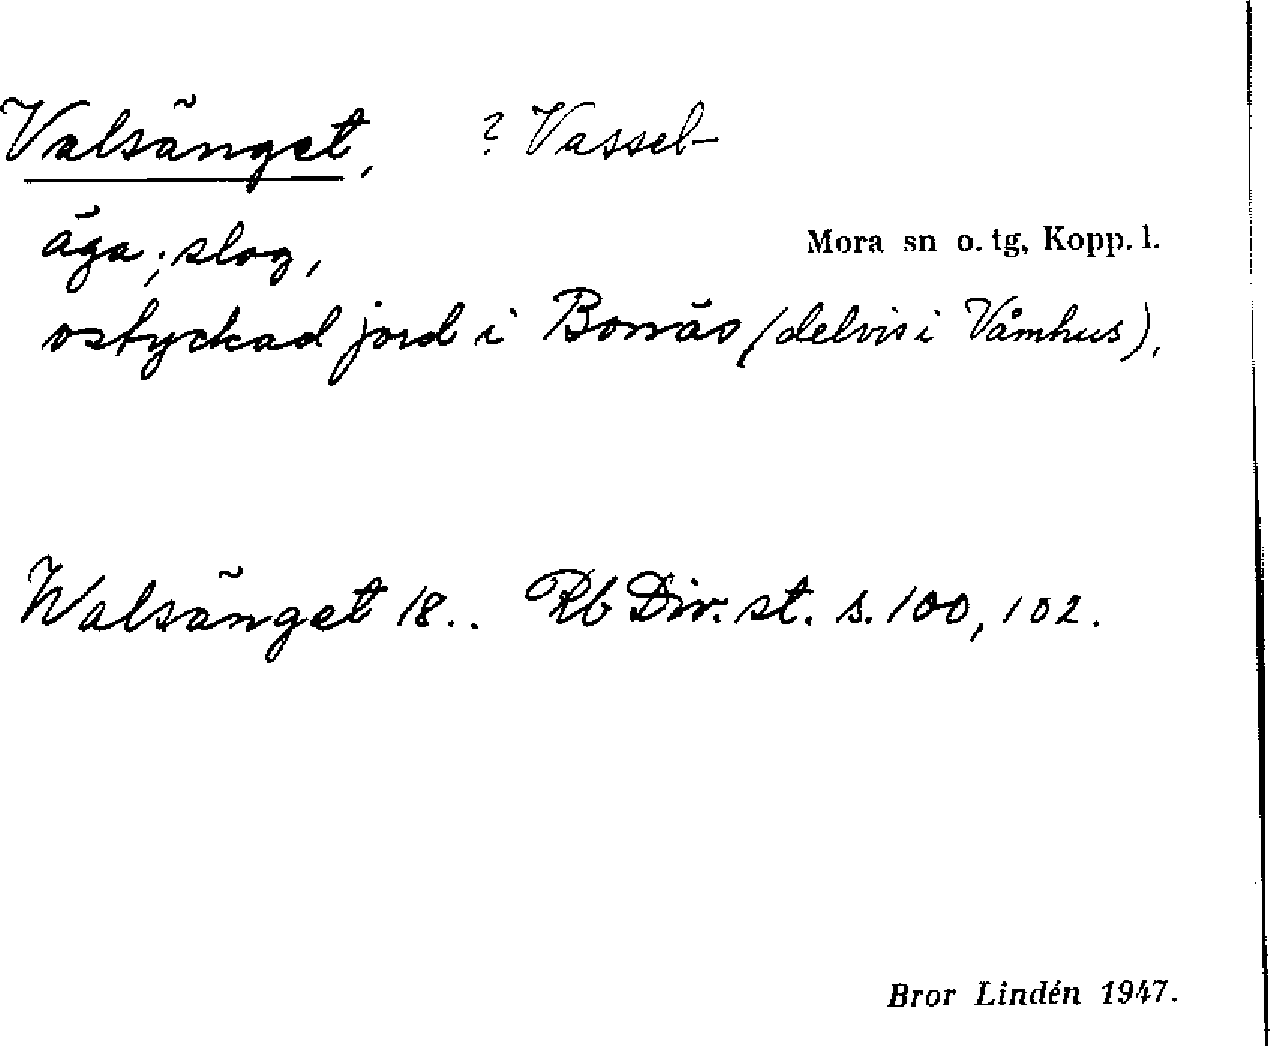 Valsänget, ? Vassel-
äga; slog,
Mora sn o. tg, Kopp. l.
ostyckad jord i Bonäs (delvis i Våmhus),
Walsänget 18.. Rb Div. st. s. 100, 102.
Bror Lindén 1947.